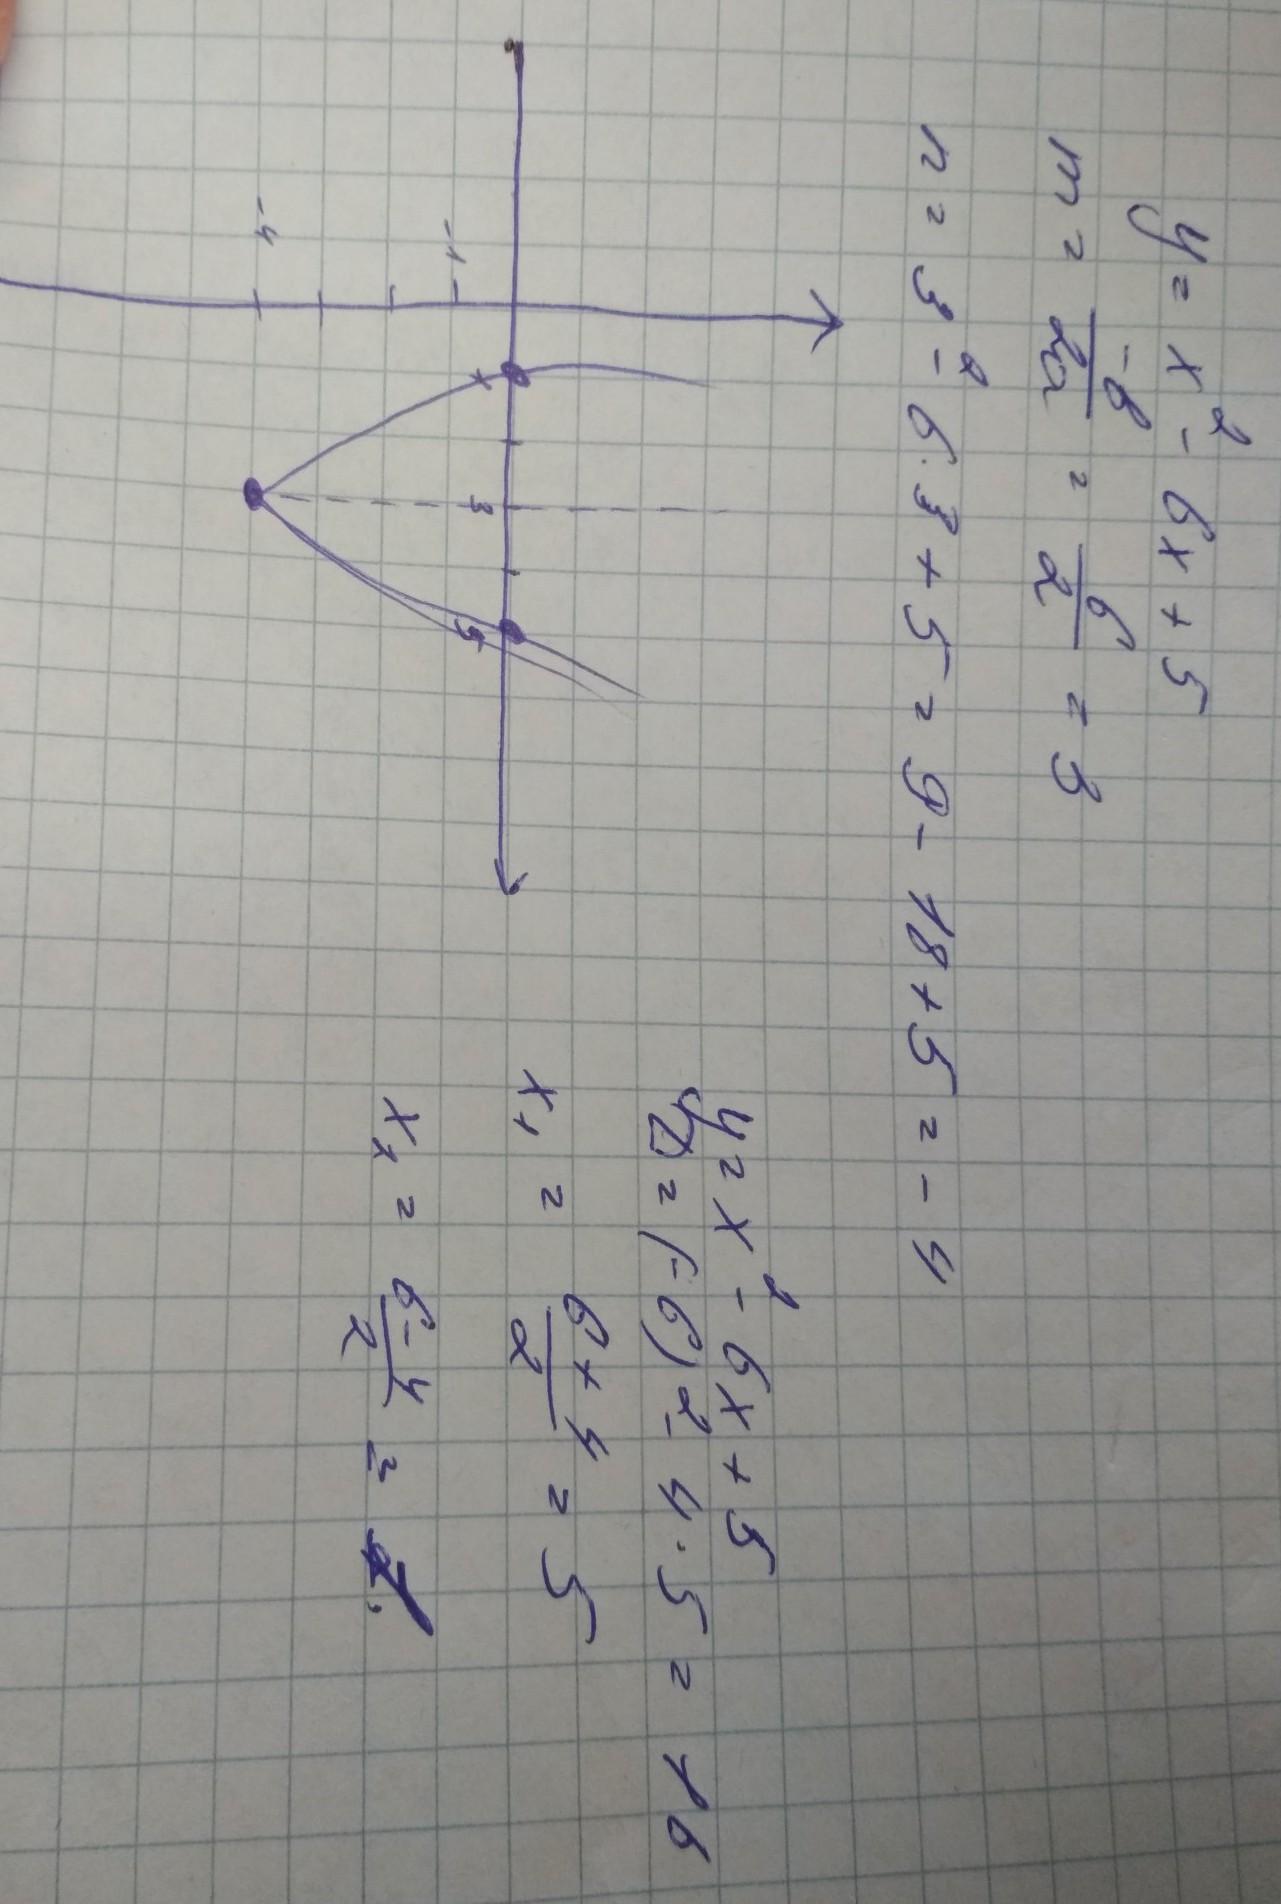 y = x² - 6x + 5
m = -b/2a = 6/2 = 3
n = 3² - 6·3 + 5 = 9 - 18 + 5 = -4
1 3 5
-1
-4
y = x² - 6x + 5
D = (-6)² - 4·5 = 16
x₁ = (6+4)/2 = 5
x₂ = (6-4)/2 = 1